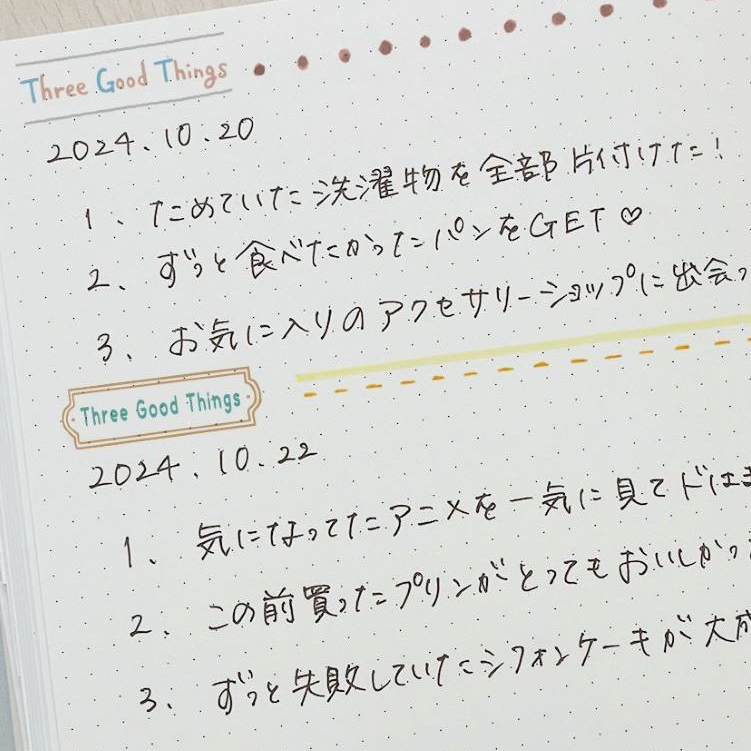 Three Good Things
2024.10.20
1、ためていた洗濯物を全部片付けた!
2、ずっと食べたかったパンをGET♡
3、お気に入りのアクセサリーショップに出会っ
Three Good Things
2024.10.22
1、気になってたアニメを一気に見てドはま
2、この前買ったプリンがとってもおいしかっ
3、ずっと失敗していたシフォンケーキが大成